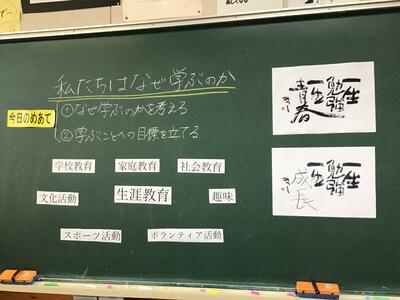 私たちはなぜ学ぶのか
今日のめあて
①なぜ学ぶのかを考える
②学ぶことへの目標を立てる
学校教育
家庭教育
社会教育
文化活動
生涯教育
趣味
スポーツ活動
ボランティア活動
一生
勉強
一生
青春
一生
勉強
一生
成長